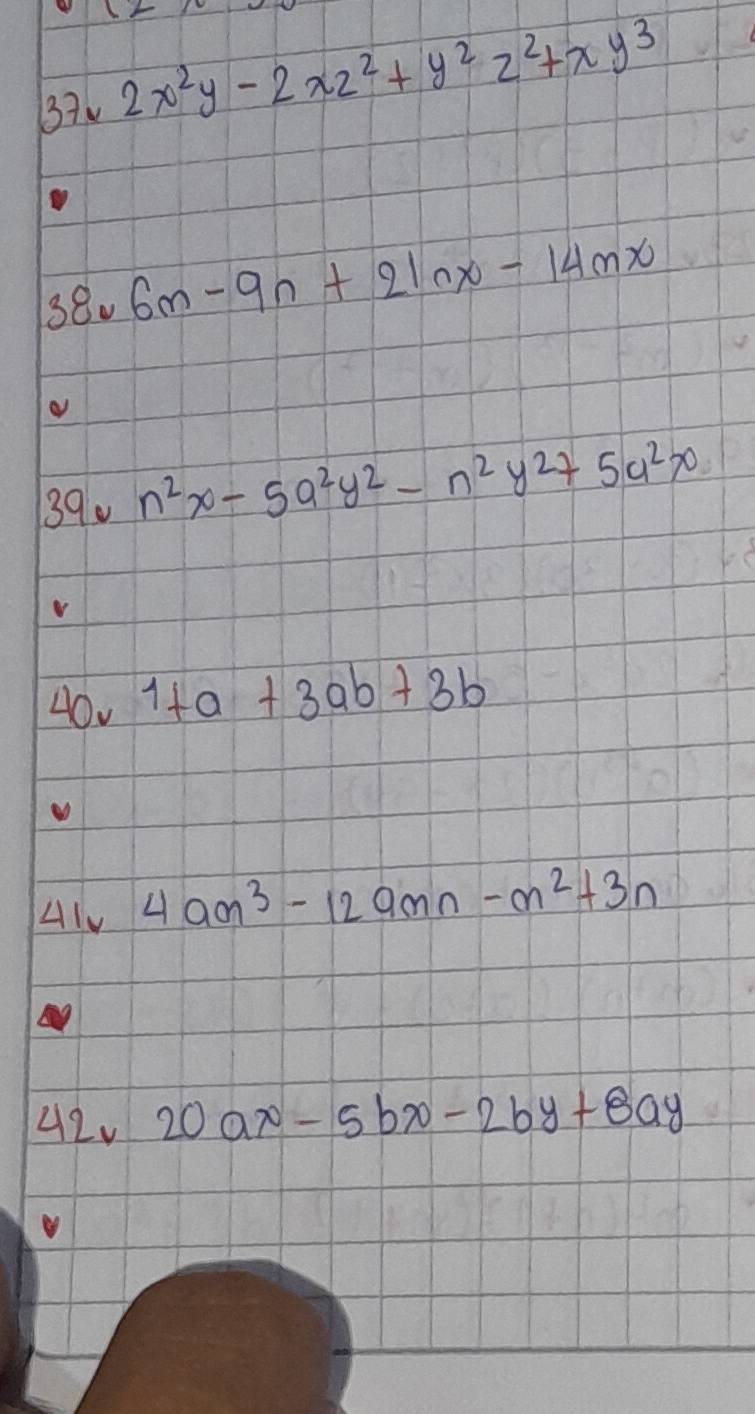 37. 2x²y - 2xz² + y² z² + xy³
38. 6m - 9n + 21nx - 14mx
39. n²x - 5a²y² - n²y² + 5a²x
40. 1 + a + 3ab + 3b
41. 4am³ - 12amn - m² + 3n
42. 20ax - 5bx - 2by + 8ay